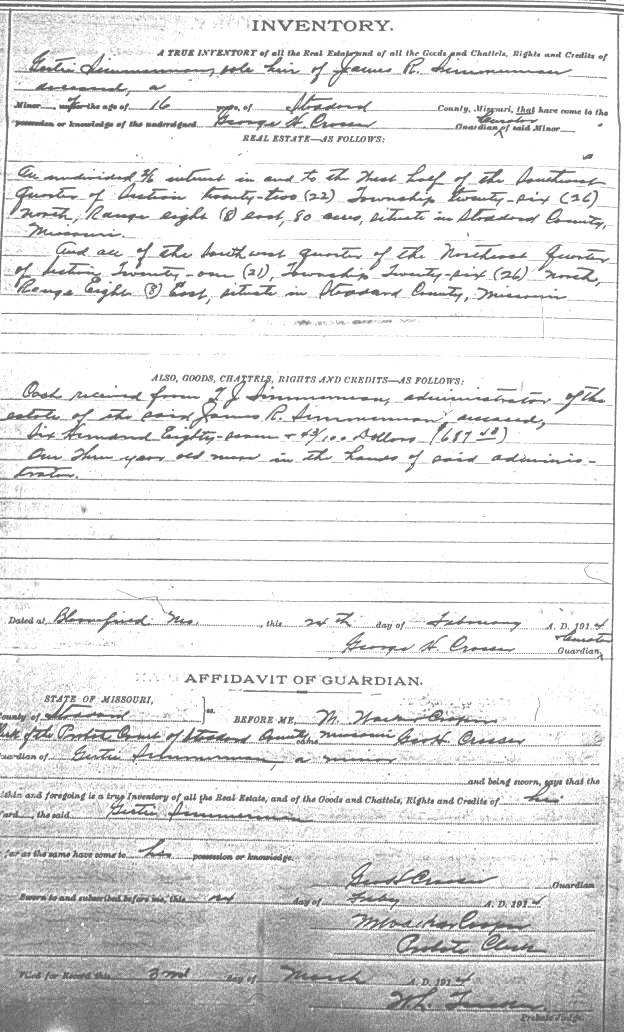 INVENTORY.
A TRUE INVENTORY of all the Real Estate and of all the Goods and Chattels, Rights and Credits of
Gertie Simmerman, sole heir of James R. Simmerman
deceased, a
Minor of the age of 16 years, of Stoddard County, Missouri, that have come to the
possession or knowledge of the undersigned George H. Crosser Guardian & Curator of said Minor
REAL ESTATE—AS FOLLOWS:
An undivided interest in and to the West half of the Southwest
Quarter of Section twenty-two (22) Township twenty-six (26)
North, Range eight (8) east, 80 acres, situate in Stoddard County,
Missouri.
And all of the Southwest quarter of the Northeast Quarter
of Section Twenty-one (21), Township Twenty-six (26) North,
Range Eight (8) East, situate in Stoddard County, Missouri
ALSO, GOODS, CHATTELS, RIGHTS AND CREDITS—AS FOLLOWS:
Cash received from T. J. Simmerman, administrator of the
estate of the said James R. Simmerman, deceased,
Six Hundred Eighty-seven + 48/100 Dollars (687 48)
One three year old mare in the hands of said adminis-
trator.
Dated at Bloomfield Mo., this 24th day of February A. D. 1914
George H. Crosser Guardian & Curator
AFFIDAVIT OF GUARDIAN.
STATE OF MISSOURI,
County of Stoddard } ss. BEFORE ME, M. Cooper
Clerk of the Probate Court of Stoddard County, Missouri came Geo H. Crosser
Guardian of Gertie Simmerman, a minor
and being sworn, says that the
within and foregoing is a true Inventory of all the Real Estate, and of the Goods and Chattels, Rights and Credits of his
Ward, the said Gertie Simmerman
far as the same have come to his possession or knowledge.
Geo H Crosser Guardian
Sworn to and subscribed before me, this 24 day of Feby A. D. 1914
Cooper
Probate Clerk
Filed for Record this 3rd day of March A. D. 1914
Probate Judge.